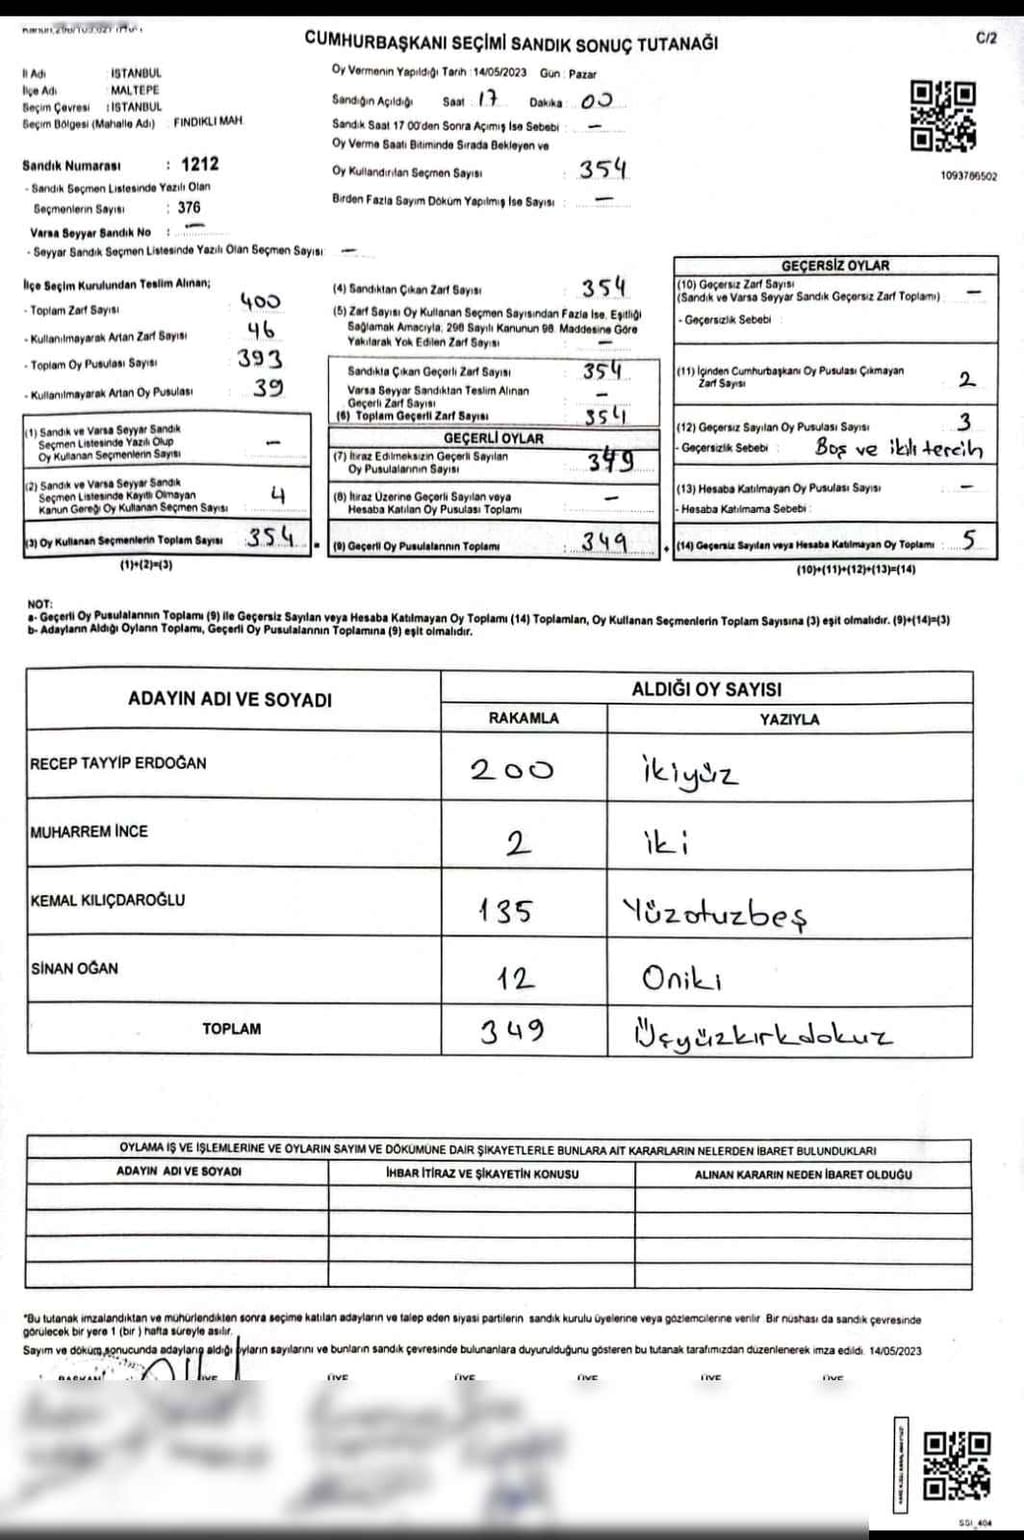 CUMHURBAŞKANI SEÇİMİ SANDIK SONUÇ TUTANAĞI
C/2
İl Adı : İSTANBUL
İlçe Adı : MALTEPE
Seçim Çevresi : İSTANBUL
Seçim Bölgesi (Mahalle Adı) : FINDIKLI MAH.
Oy Vermenin Yapıldığı Tarih : 14/05/2023 Gün : Pazar
Sandığın Açıldığı Saat : 17 Dakika : 00
Sandık Saat 17.00'den Sonra Açımış İse Sebebi : —
Oy Verme Saati Bitiminde Sırada Bekleyen ve
Oy Kullandırılan Seçmen Sayısı : 354
Birden Fazla Sayım Döküm Yapılmış İse Sayısı : —
1093786502
Sandık Numarası : 1212
- Sandık Seçmen Listesinde Yazılı Olan
Seçmenlerin Sayısı : 376
Varsa Seyyar Sandık No : —
- Seyyar Sandık Seçmen Listesinde Yazılı Olan Seçmen Sayısı: —
İlçe Seçim Kurulundan Teslim Alınan;
- Toplam Zarf Sayısı : 400
- Kullanılmayarak Artan Zarf Sayısı : 46
- Toplam Oy Pusulası Sayısı : 393
- Kullanılmayarak Artan Oy Pusulası : 39
(1) Sandık ve Varsa Seyyar Sandık
Seçmen Listesinde Yazılı Olup
Oy Kullanan Seçmenlerin Sayısı : —
(2) Sandık ve Varsa Seyyar Sandık
Seçmen Listesinde Kayıtlı Olmayan
Kanun Gereği Oy Kullanan Seçmen Sayısı : 4
(3) Oy Kullanan Seçmenlerin Toplam Sayısı : 354
(1)+(2)=(3)
(4) Sandıktan Çıkan Zarf Sayısı : 354
(5) Zarf Sayısı Oy Kullanan Seçmen Sayısından Fazla İse, Eşitliği
Sağlamak Amacıyla; 298 Sayılı Kanunun 98. Maddesine Göre
Yakılarak Yok Edilen Zarf Sayısı : —
Sandıkta Çıkan Geçerli Zarf Sayısı : 354
Varsa Seyyar Sandıktan Teslim Alınan
Geçerli Zarf Sayısı : —
(6) Toplam Geçerli Zarf Sayısı : 354
GEÇERLİ OYLAR
(7) İtiraz Edilmeksizin Geçerli Sayılan
Oy Pusulalarının Sayısı : 349
(8) İtiraz Üzerine Geçerli Sayılan veya
Hesaba Katılan Oy Pusulası Toplamı : —
(9) Geçerli Oy Pusulalarının Toplamı : 349
GEÇERSİZ OYLAR
(10) Geçersiz Zarf Sayısı
(Sandık ve Varsa Seyyar Sandık Geçersiz Zarf Toplamı) : —
- Geçersizlik Sebebi :
(11) İçinden Cumhurbaşkanı Oy Pusulası Çıkmayan
Zarf Sayısı : 2
(12) Geçersiz Sayılan Oy Pusulası Sayısı : 3
- Geçersizlik Sebebi : Boş ve ikili tercih
(13) Hesaba Katılmayan Oy Pusulası Sayısı : —
- Hesaba Katılmama Sebebi :
(14) Geçersiz Sayılan veya Hesaba Katılmayan Oy Toplamı : 5
(10)+(11)+(12)+(13)=(14)
NOT:
a- Geçerli Oy Pusulalarının Toplamı (9) ile Geçersiz Sayılan veya Hesaba Katılmayan Oy Toplamı (14) Toplamları, Oy Kullanan Seçmenlerin Toplam Sayısına (3) eşit olmalıdır. (9)+(14)=(3)
b- Adayların Aldığı Oyların Toplamı, Geçerli Oy Pusulalarının Toplamına (9) eşit olmalıdır.
ADAYIN ADI VE SOYADI
ALDIĞI OY SAYISI
RAKAMLA YAZIYLA
RECEP TAYYİP ERDOĞAN 200 ikiyüz
MUHARREM İNCE 2 iki
KEMAL KILIÇDAROĞLU 135 Yüzotuzbeş
SİNAN OĞAN 12 Oniki
TOPLAM 349 Üçyüzkırkdokuz
OYLAMA İŞ VE İŞLEMLERİNE VE OYLARIN SAYIM VE DÖKÜMÜNE DAİR ŞİKAYETLERLE BUNLARA AİT KARARLARIN NELERDEN İBARET BULUNDUKLARI
ADAYIN ADI VE SOYADI İHBAR İTİRAZ VE ŞİKAYETİN KONUSU ALINAN KARARIN NEDEN İBARET OLDUĞU
*Bu tutanak imzalandıktan ve mühürlendikten sonra seçime katılan adayların ve talep eden siyasi partilerin sandık kurulu üyelerine veya gözlemcilerine verilir. Bir nüshası da sandık çevresinde
görülecek bir yere 1 (bir) hafta süreyle asılır.
Sayım ve döküm sonucunda adayların aldığı oyların sayılarını ve bunların sandık çevresinde bulunanlara duyurulduğunu gösteren bu tutanak tarafımızdan düzenlenerek imza edildi. 14/05/2023
BAŞKAN ÜYE ÜYE ÜYE ÜYE ÜYE ÜYE